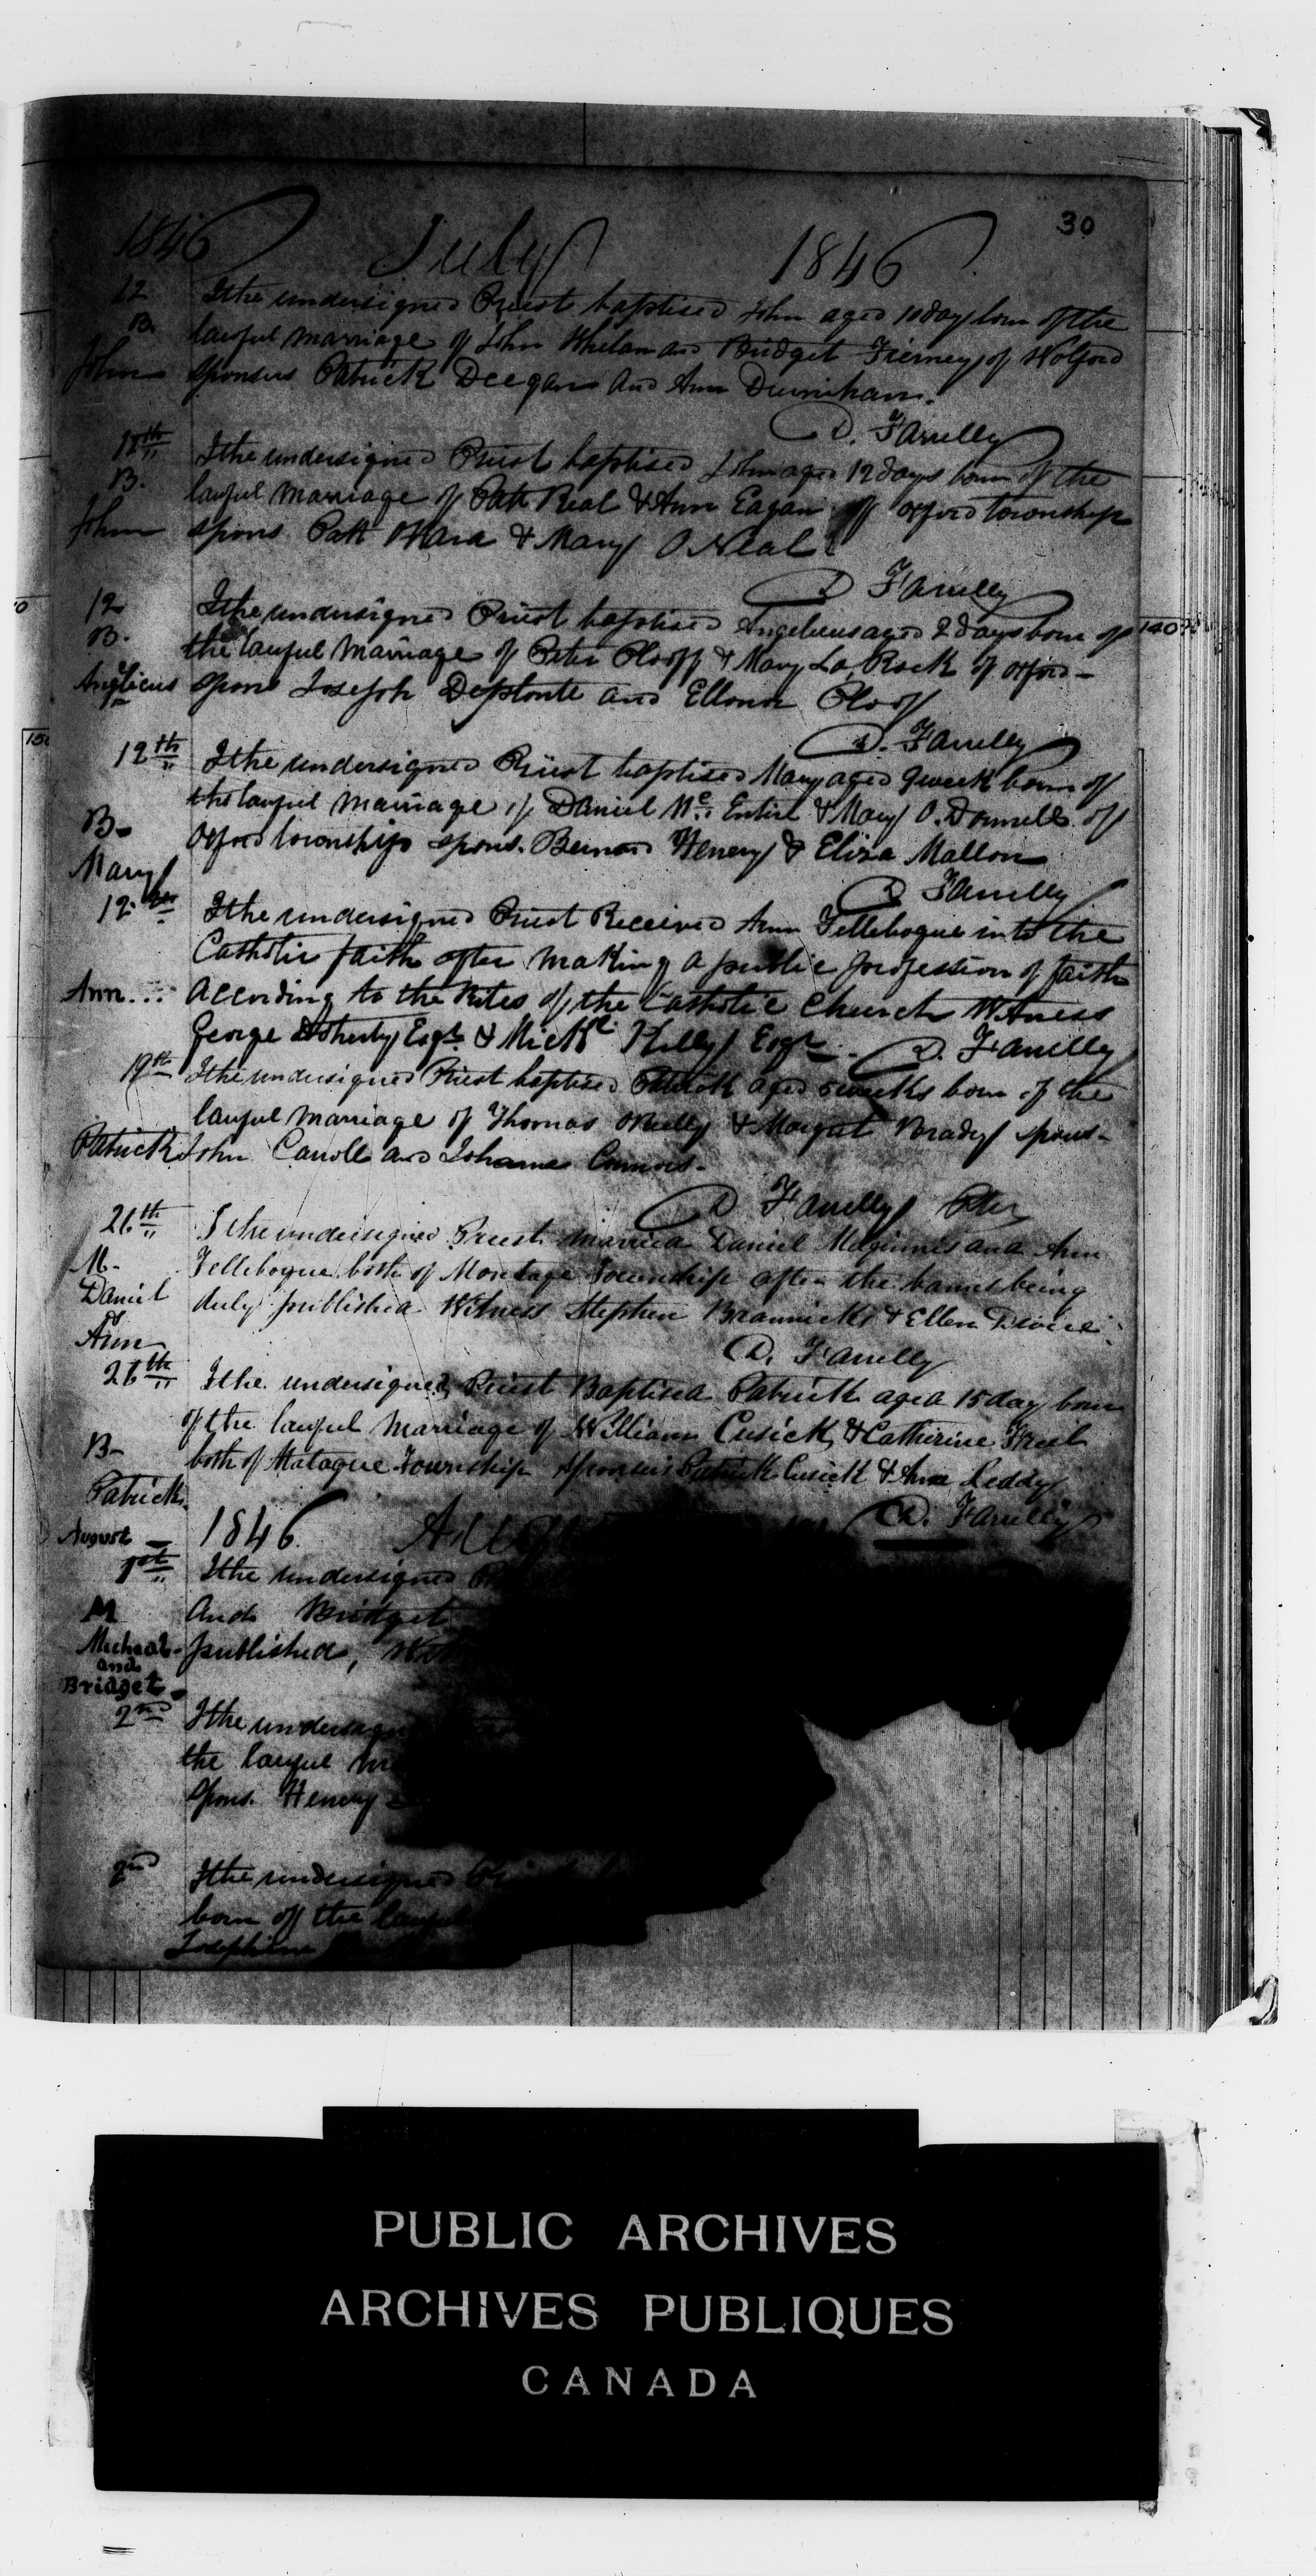 30
1846 July 1846
12 I the undersigned Priest baptised John aged 10 day born of the
B. lawful marriage of John Whelan and Bridget Tierney of Wolford
John sponsers Patrick Deegan and Ann
D. Farrelly
12th I the undersigned Priest baptised John aged 12 days born of the
B. lawful marriage of Patk Real & Ann Eagan of oxford township
John spons Patk OHara & Mary O Neal
D Farrelly
12 I the undersigned Priest baptised aged 2 days born of
B. the lawful marriage of Peter Plooff & Mary La Rock of oxford-
Anglicus spons Joseph and Ellonor Plooff
D. Farrelly
12th I the undersigned Priest baptised Mary aged 9 week born of
the lawful marriage of Daniel Mc Entire & Mary O. Donnell of
B- Oxford township spons. Bernard Henery & Eliza Mallon
Mary
D Farrelly
12th I the undersigned Priest Received Ann Fellebogue into the
Catholic faith after making a public profession of faith
Ann... According to the Rites of the Catholic Church Witness
George Doherty Esqr & Mickl Kelly Esqr. D. Farrelly
19th I the undersigned Priest baptised Patrick aged weeks born of the
lawful marriage of Thomas OReilly & Margat Brady spons-
Patrick John Carroll and Johanna Connors-
D Farrelly Pter
26th I the undersigned Priest married Daniel Meginnis and Ann
M- Fellebogue both of Montage Township after the banns being
Daniel duly published Witness Stephen Brannick & Ellen
& Ann
D. Farrelly
26th I the undersigned Priest Baptised Patrick aged 15 day born
of the lawful marriage of William Cusick & Catherine
B- both of Matague Township sponsers Patrick Cusick & Ann Leddy
Patrick
D. Farrelly
August - 1846.
1st I the undersigned
M And Bridget
Micheal- published,
and
Bridget.
2nd I the undersigned
the lawful
spons. Henery
2nd I the undersigned
born of the lawful
Josephine
140
150
PUBLIC ARCHIVES
ARCHIVES PUBLIQUES
CANADA